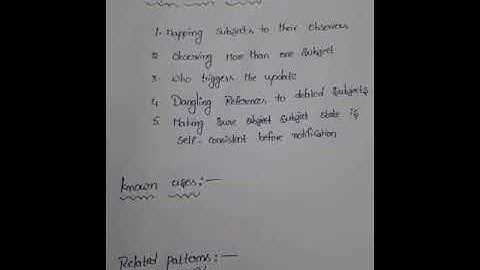 1. Mapping subjects to their observers
2. Observing more than one subject
3. Who triggers the update
4. Dangling References to deleted subjects
5. Making sure object subject state is
self-consistent before notification
Known uses:-
Related patterns:-